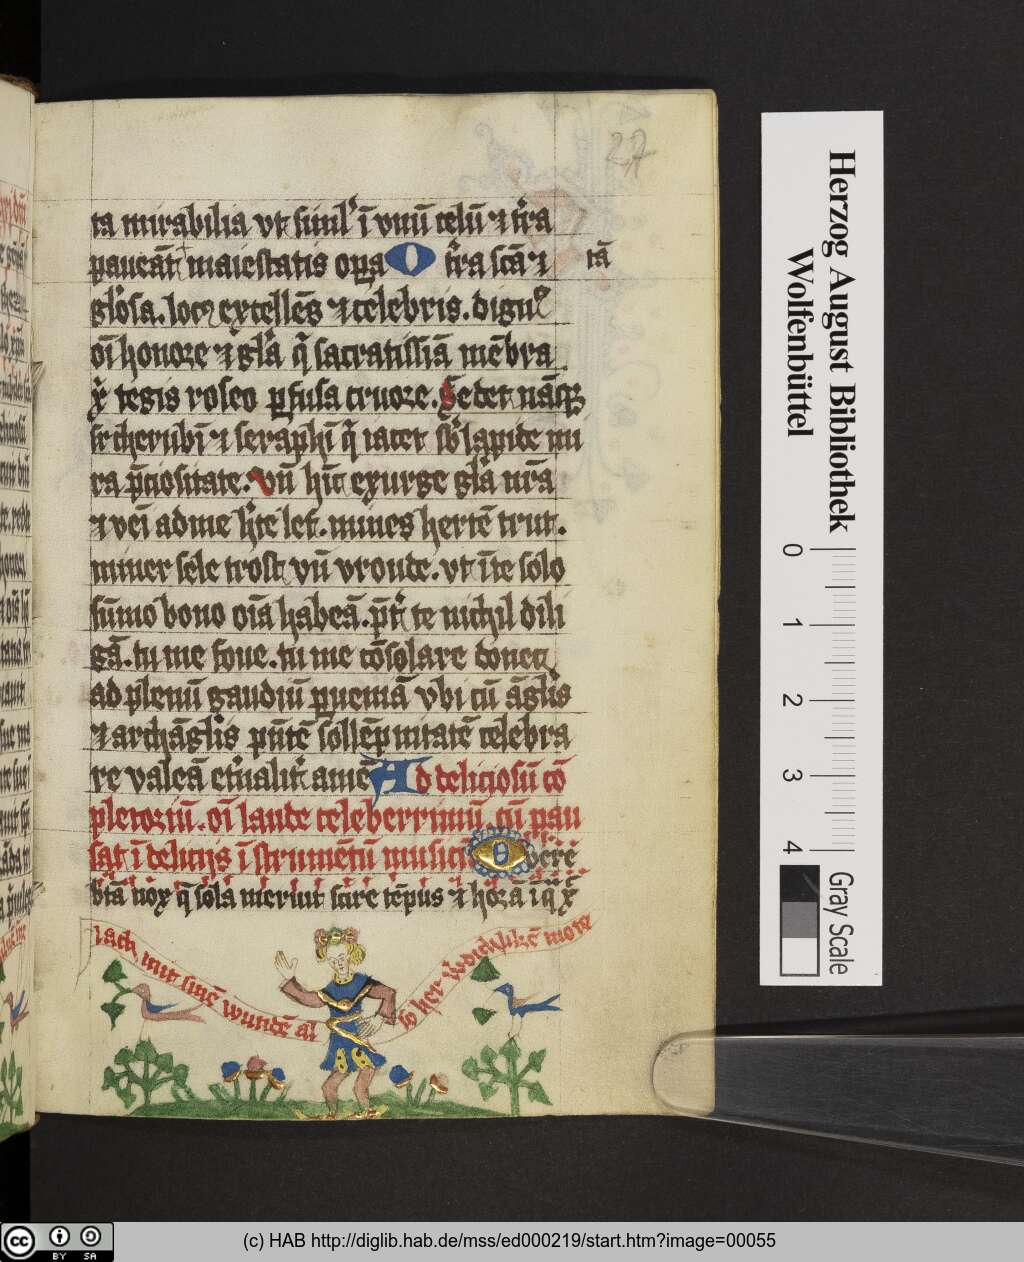 27
ta mirabilia vt simul ī vnū celū ⁊ tr̄a
paueāt maiestatis oꝑa O tr̄a scā ⁊ tā
gl'osa. locꝰ excellēs ⁊ celebris. dignꝰ
oī honore ⁊ gl'a q̄ sacratissīa mēbra
xp̄i tegis roseo ꝑfusa cruore. Sedet nāqꝫ
sr̄ cherubī ⁊ seraphī q̄ iacet sb' lapide mi
ra p̄ciositate. vn̄ hīc exurge gl'a mr̄a
⁊ vēi ad me h'te lef. mines hertē trut.
miner sele trost vn̄ vroude. vt ī te solo
sūmo bono oīa habeā. p̄t' te nichil dili
gā. tu me foue. tu me cōsolare donec
ad plenū gaudiū ꝑueniā vbi cū āglis
⁊ archāglis p̄ntē sollēpnitatē celebra
re valeā et'nalit' amē Ad deliciosū cō
pletoriū. oī laude celeberrimū. cū pau
sat ī delicijs ī strumētū musicū O vere
btā nox q̄ sola meruit scire tēpus ⁊ horā ī q̄ xp̄c
nach mit sinē wundē al so her w'dichlikē mote
Herzog August Bibliothek
Wolfenbüttel
0 1 2 3 4
Gray Scale
cc BY SA
(c) HAB http://diglib.hab.de/mss/ed000219/start.htm?image=00055